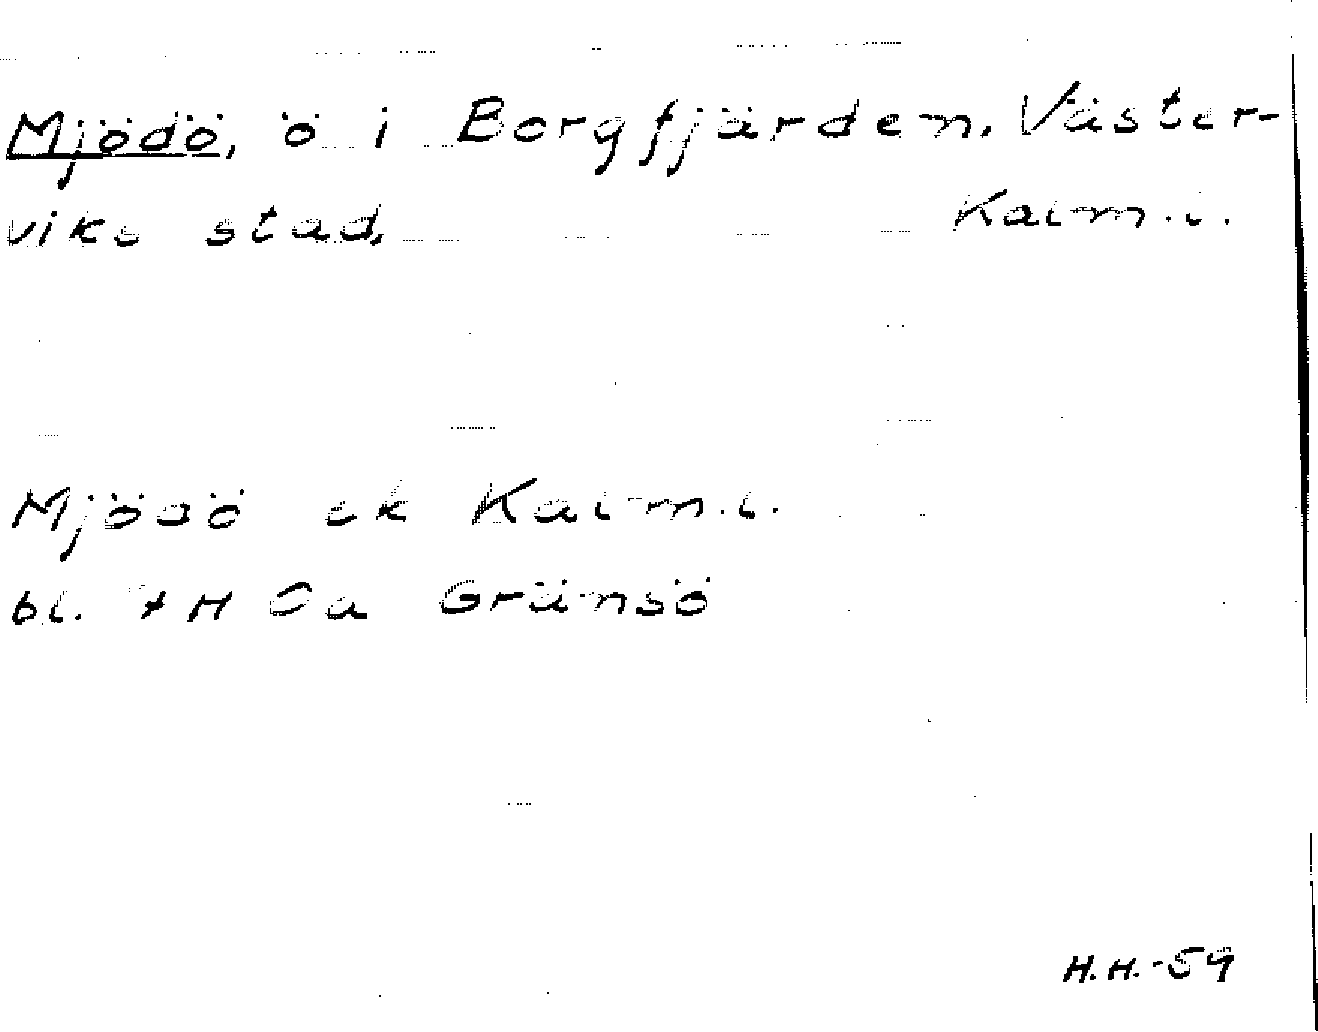 Mjödö, ö i Borgfjärden. Väster-
viks stad, Kalm.l.
Mjödö ek Kalm.l.
bl. 7H Oa Gränsö
H.H.-59